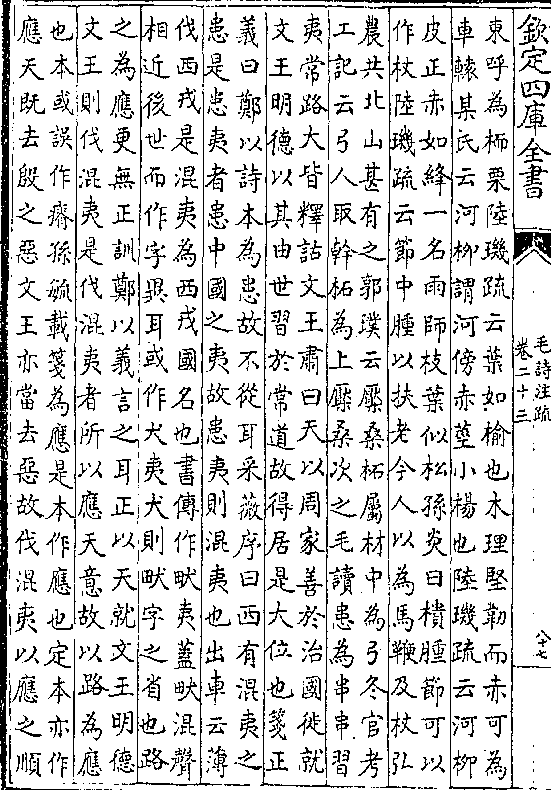 欽定四庫全書
毛詩注疏
卷二十三
東呼為栭栗陸璣疏云葉如榆也木理堅勒而赤可為
車轅某氏云河柳謂河傍赤莖小楊也陸璣疏云河柳
皮正赤如絳一名雨師枝葉似松孫炎曰樻腫節可以
作杖陸璣疏云節中腫以扶老今人以為馬鞭及杖弘
農共北山甚有之郭璞云檿桑柘屬材中為弓冬官考
工記云弓人取幹柘為上檿桑次之毛讀患為串串習
夷常路大皆釋詁文王肅曰天以周家善於治國徙就
文王明德以其由世習於常道故得居是大位也箋正
義曰鄭以詩本為患故不從耳采薇序曰西有混夷之
患是患夷者患中國之夷故患夷則混夷也出車云薄
伐西戎是混夷為西戎國名也書傳作畎夷蓋畎混聲
相近後世而作字異耳或作犬夷犬則畎字之省也路
之為應更無正訓鄭以義言之耳正以天就文王明德
文王則伐混夷是伐混夷者所以應天意故以路為應
也本或誤作瘠孫毓載箋為應是本作應也定本亦作
應天既去殷之惡文王亦當去惡故伐混夷以應之順